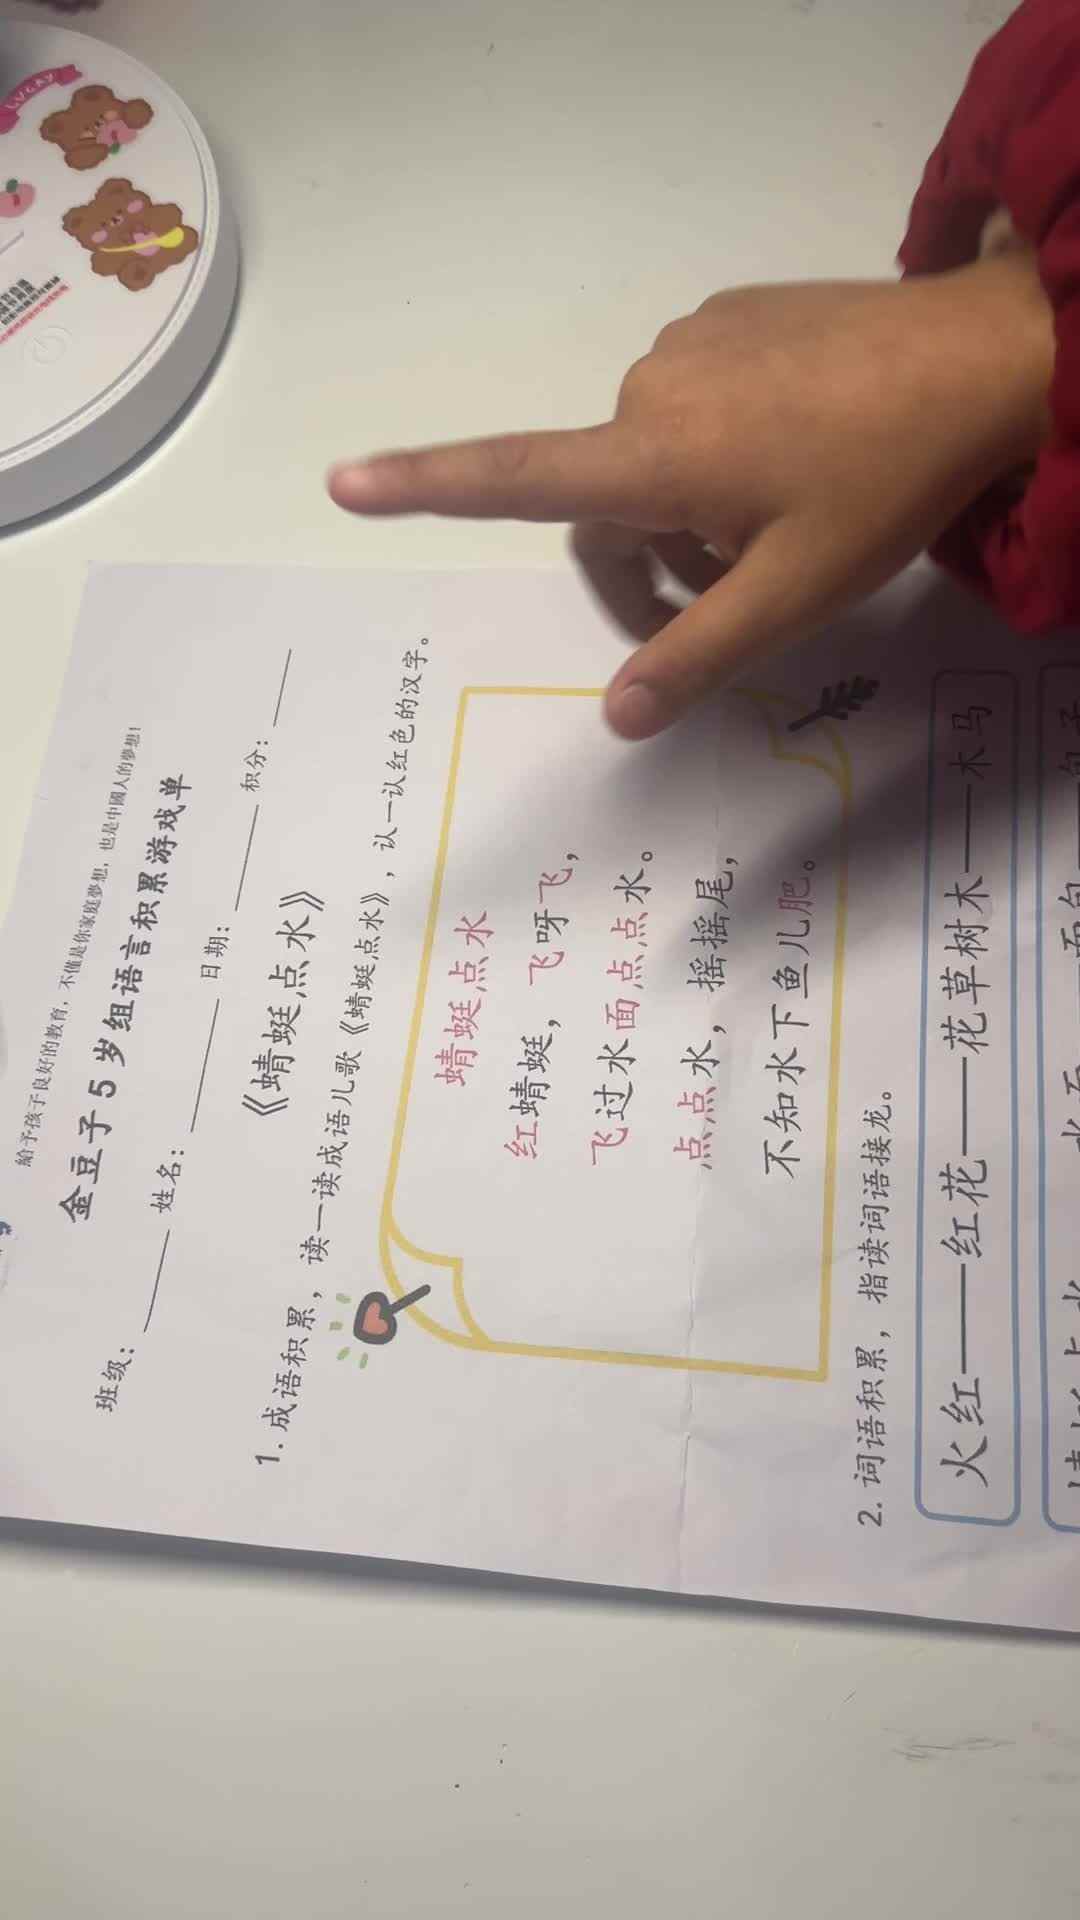 給予孩子良好的教育，不僅是你家庭夢想，也是中國人的夢想！
金豆子5岁组语言积累游戏单
班级：______ 姓名：______ 日期：______ 积分：______
《蜻蜓点水》
1. 成语积累，读一读成语儿歌《蜻蜓点水》，认一认红色的汉字。
蜻蜓点水
红蜻蜓，飞呀飞，
飞过水面点点水。
点点水，摇摇尾，
不知水下鱼儿肥。
2. 词语积累，指读词语接龙。
火红——红花——花草树木——木马
LUCKY